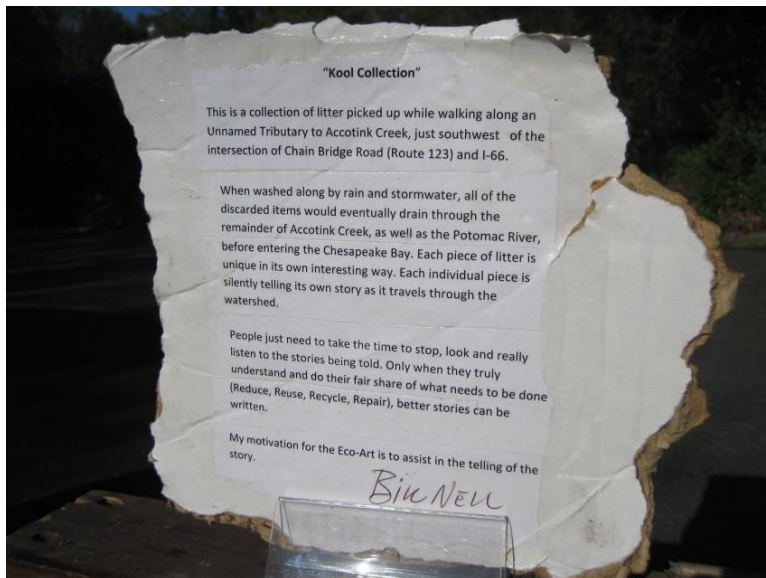 "Kool Collection"
This is a collection of litter picked up while walking along an
Unnamed Tributary to Accotink Creek, just southwest of the
intersection of Chain Bridge Road (Route 123) and I-66.
When washed along by rain and stormwater, all of the
discarded items would eventually drain through the
remainder of Accotink Creek, as well as the Potomac River,
before entering the Chesapeake Bay. Each piece of litter is
unique in its own interesting way. Each individual piece is
silently telling its own story as it travels through the
watershed.
People just need to take the time to stop, look and really
listen to the stories being told. Only when they truly
understand and do their fair share of what needs to be done
(Reduce, Reuse, Recycle, Repair), better stories can be
written.
My motivation for the Eco-Art is to assist in the telling of the
story.
Bill Nell